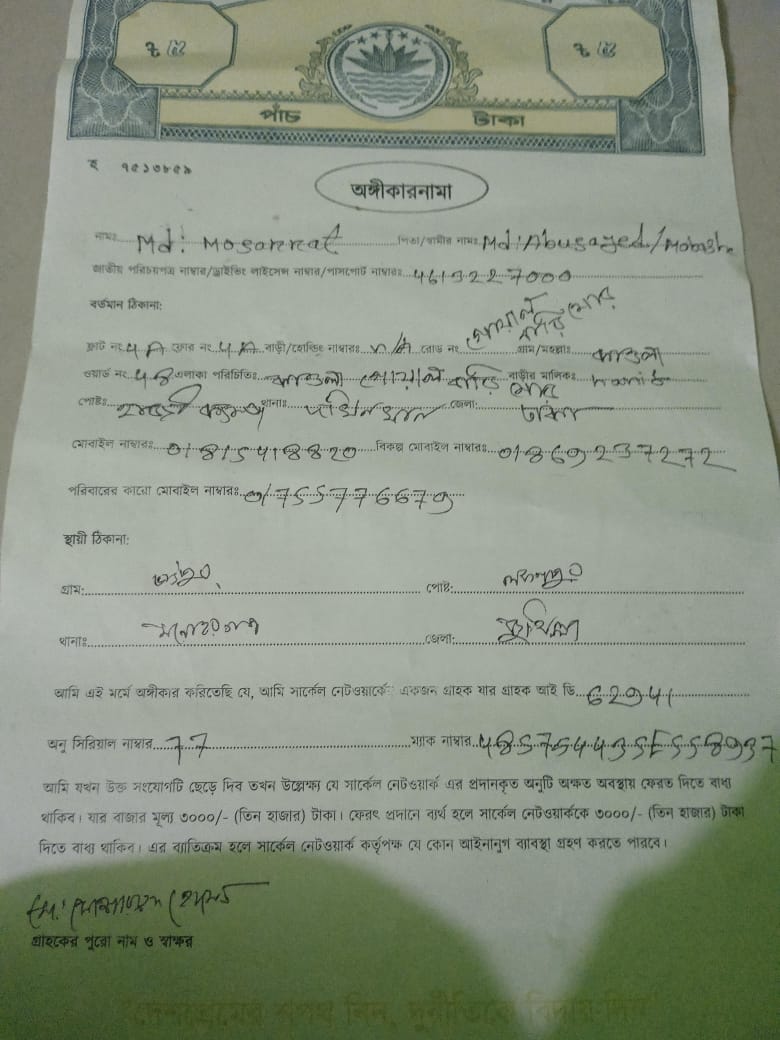 ৳ ৫ ৳ ৫
পাঁচ টাকা
হ ৭৫১৩৮৫৯
অঙ্গীকারনামা
নামঃ Md: Mosarraf পিতা/স্বামীর নামঃ Md: Abusayed/
জাতীয় পরিচয়পত্র নাম্বার/ড্রাইভিং লাইসেন্স নাম্বার/পাসপোর্ট নাম্বারঃ 4613227000
বর্তমান ঠিকানা:
গোয়াল বাড়ি মোর
ফ্লাট নং 4A ফ্লোর নং 4A বাড়ী/হোল্ডিং নাম্বারঃ n/A রোড নং গ্রাম/মহল্লাঃ কাওলা
ওয়ার্ড নং 48 এলাকা পরিচিতিঃ কাওলা গোয়াল বাড়ি মোর বাড়ীর মালিকঃ
পোষ্টঃ থানাঃ দক্ষিনখান জেলা: ঢাকা
মোবাইল নাম্বারঃ 01815418820 বিকল্প মোবাইল নাম্বারঃ 01869237272
পরিবারের কারো মোবাইল নাম্বারঃ 01755776679
স্থায়ী ঠিকানা:
গ্রাম: পোষ্ট:
থানাঃ মনোহরগঞ্জ জেলা: কুমিল্লা
আমি এই মর্মে অঙ্গীকার করিতেছি যে, আমি সার্কেল নেটওয়ার্কে একজন গ্রাহক যার গ্রাহক আই ডি 62941
অনু সিরিয়াল নাম্বার 77 ম্যাক নাম্বার 485754435E558937
আমি যখন উক্ত সংযোগটি ছেড়ে দিব তখন উল্লেক্ষ্য যে সার্কেল নেটওয়ার্ক এর প্রদানকৃত অনুটি অক্ষত অবস্থায় ফেরত দিতে বাধ্য
থাকিব। যার বাজার মূল্য ৩০০০/- (তিন হাজার) টাকা। ফেরৎ প্রদানে ব্যর্থ হলে সার্কেল নেটওয়ার্ককে ৩০০০/- (তিন হাজার) টাকা
দিতে বাধ্য থাকিব। এর ব্যাতিক্রম হলে সার্কেল নেটওয়ার্ক কর্তৃপক্ষ যে কোন আইনানুগ ব্যাবস্থা গ্রহণ করতে পারবে।
মো: মোশাররফ হোসেন
গ্রাহকের পুরো নাম ও স্বাক্ষর
"দেশপ্রেমের শপথ নিন, দুর্নীতিকে বিদায় দিন"